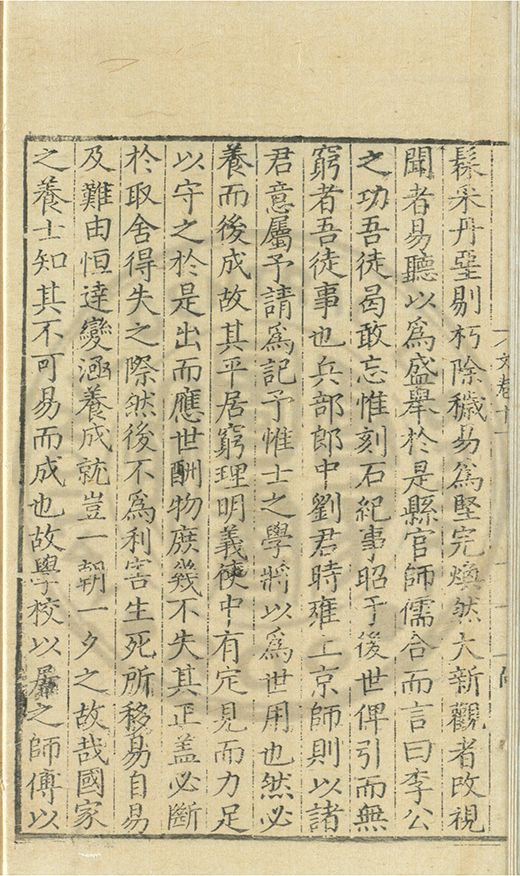 髹采丹堊剔朽除穢易爲堅完煥然大新觀者改視
聞者易聽以爲盛舉於是縣官師儒合而言曰李公
之功吾徒曷敢忘惟刻石紀事昭于後世俾引而無
窮者吾徒事也兵部郎中劉君時雍上京師則以諸
君意屬予請爲記予惟士之學將以爲世用也然必
養而後成故其平居窮理明義使中有定見而力足
以守之於是出而應世酬物庶幾不失其正蓋必斷
於取舍得失之際然後不爲利害生死所移易自易
及難由恒達變涵養成就豈一朝一夕之故哉國家
之養士知其不可易而成也故學校以居之師傅以
文卷十一